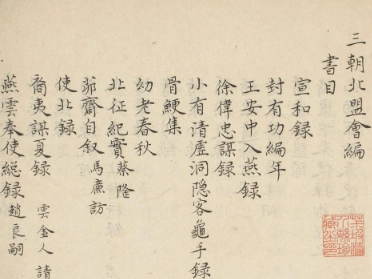 三朝北盟會編
書目
宣和録
封有功編年
王安中入燕録
徐偉忠謀録
小有清虛洞隐客龜手録
骨鯁集
幼老春秋
北征紀實蔡隆
茆齋自叙馬廉訪
使北録
裔夷謀夏録 雲金人請
燕雲奉使総録趙良嗣